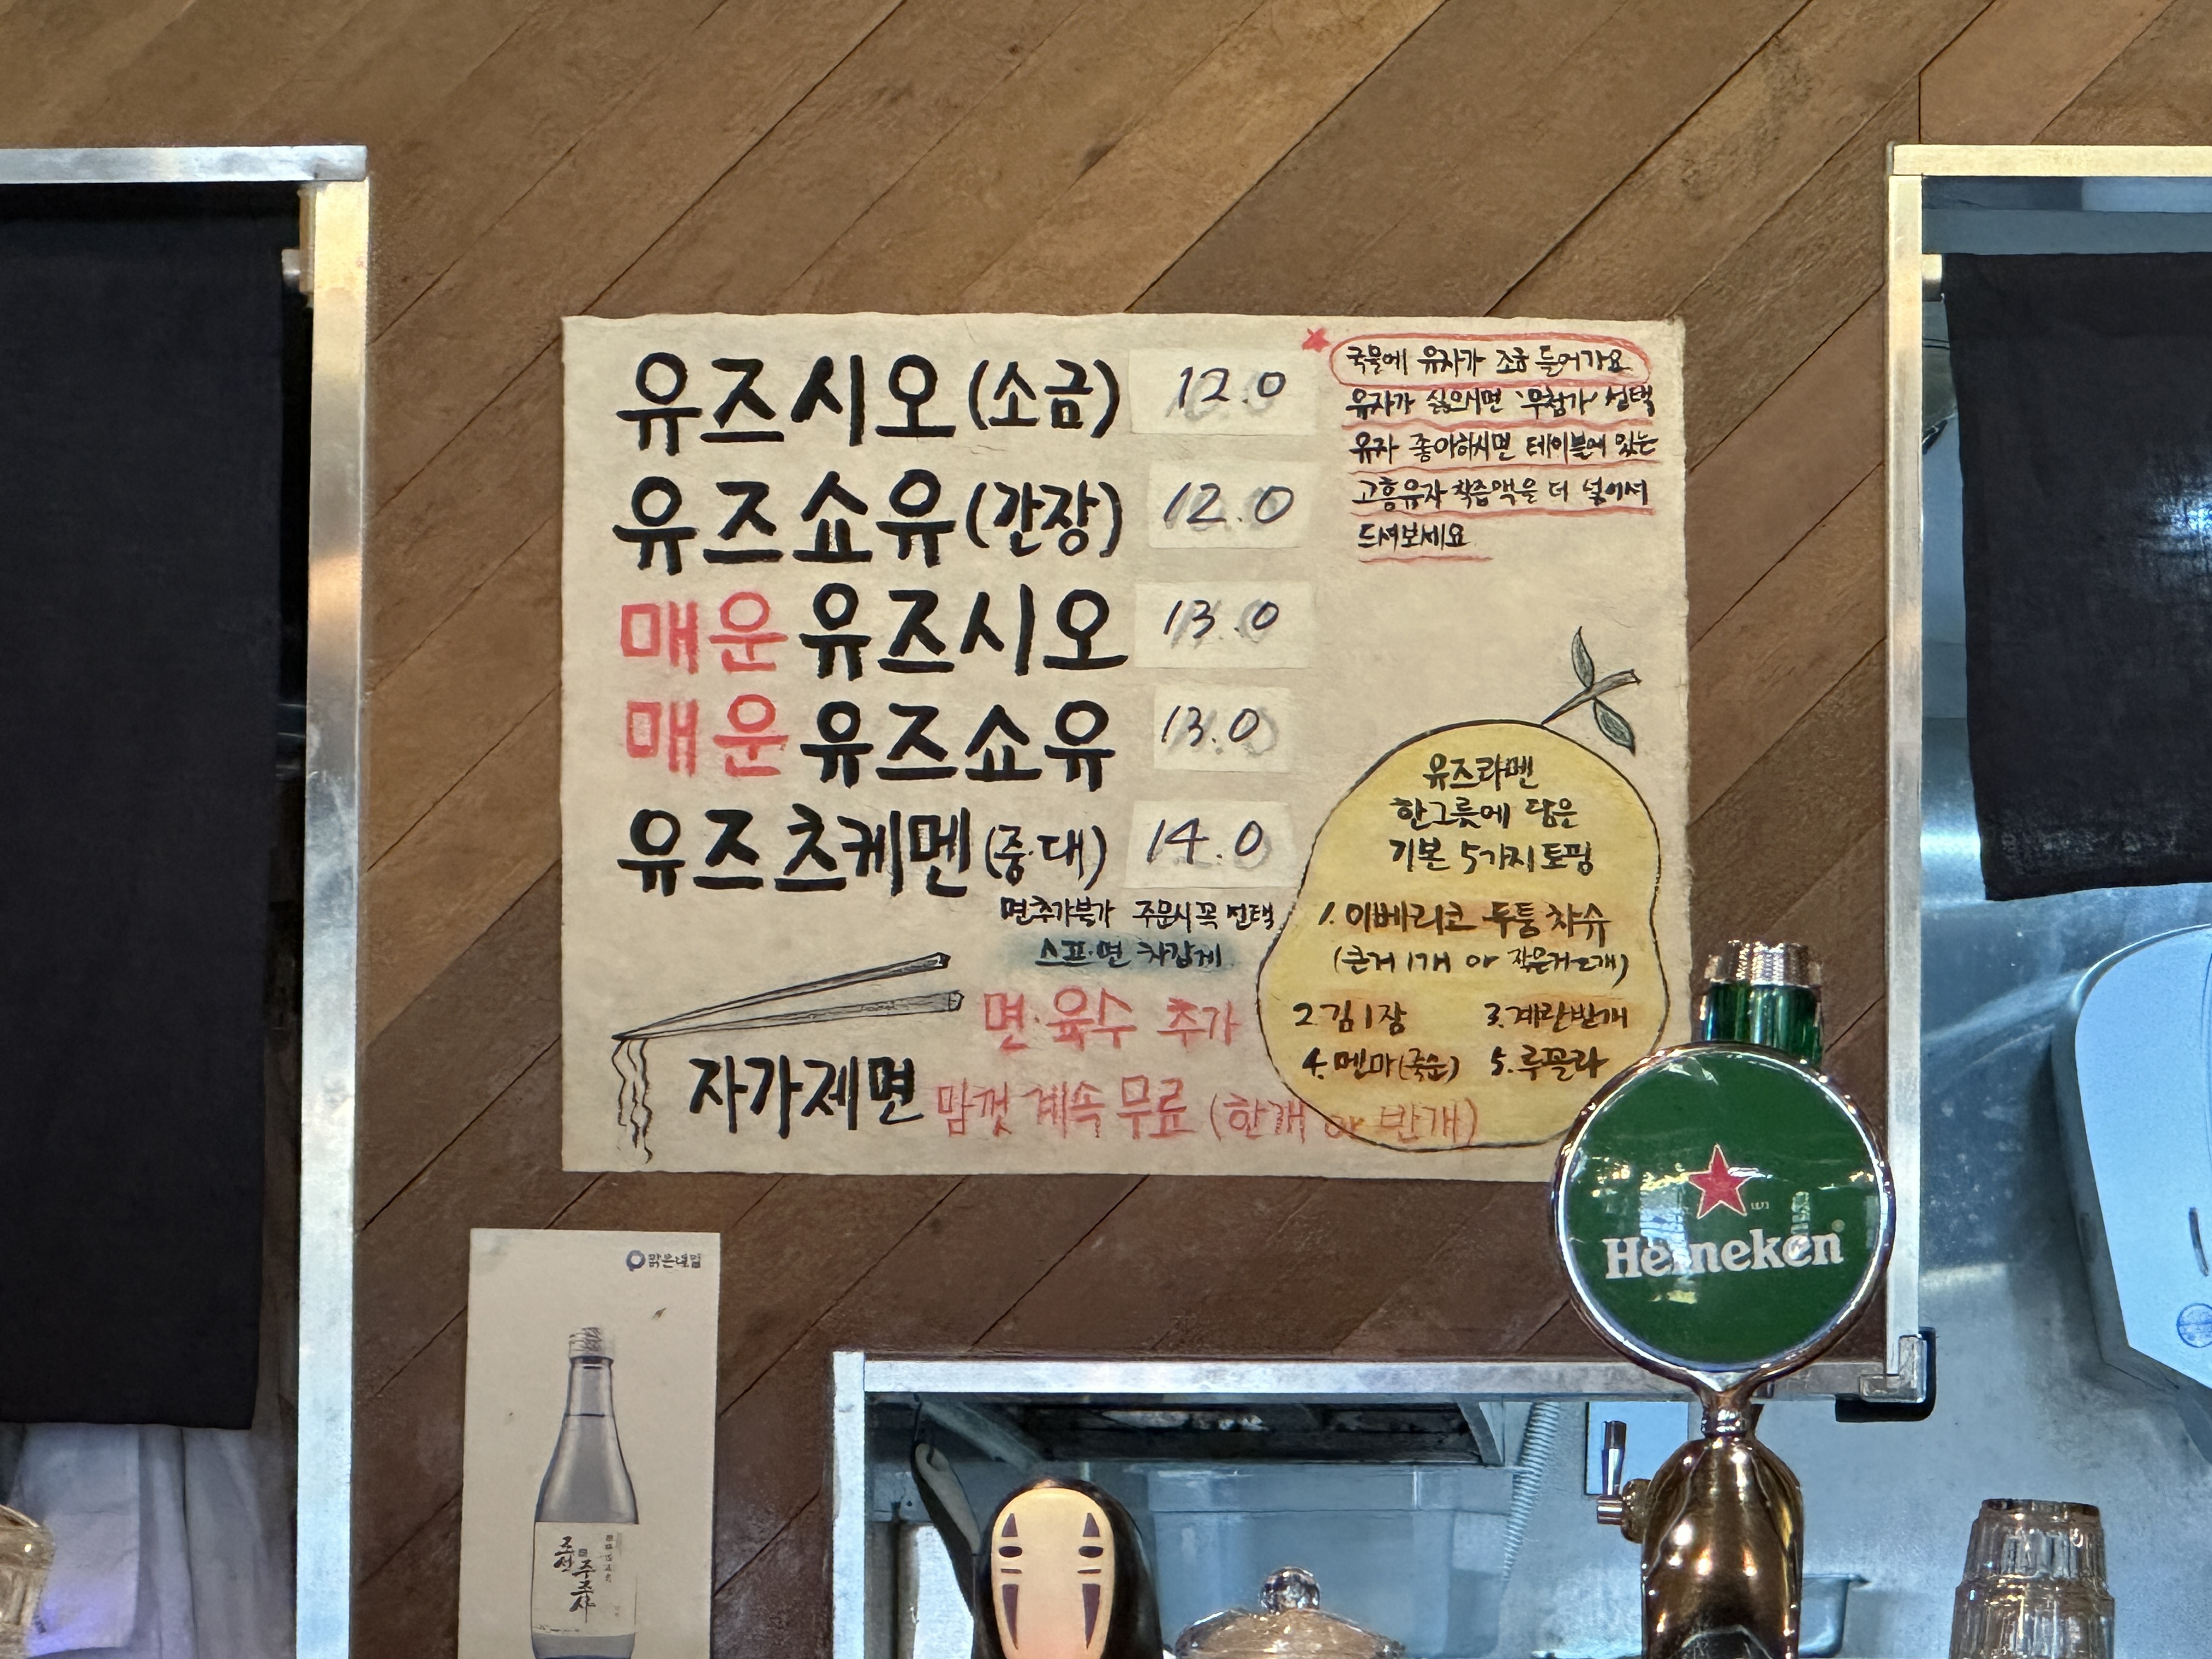 유즈시오(소금) 12.0
유즈쇼유(간장) 12.0
매운 유즈시오 13.0
매운 유즈쇼유 13.0
유즈츠케멘(중·대) 14.0
면추가불가 주문시 꼭 선택
스프·면 차갑게
면·육수 추가
자가제면 맘껏 계속 무료 (한개 or 반개)
국물에 유자가 조금 들어가요
유자가 싫으시면 '무첨가' 선택
유자 좋아하시면 테이블에 있는
고흥유자 착즙액을 더 넣어서
드셔보세요
유즈라멘
한그릇에 담은
기본 5가지 토핑
1. 이베리코 두툼 챠슈
(큰거 1개 or 작은거 2개)
2. 김 1장 3. 계란반개
4. 멘마(죽순) 5. 루꼴라
Heineken
맑은내일
조선
주조사